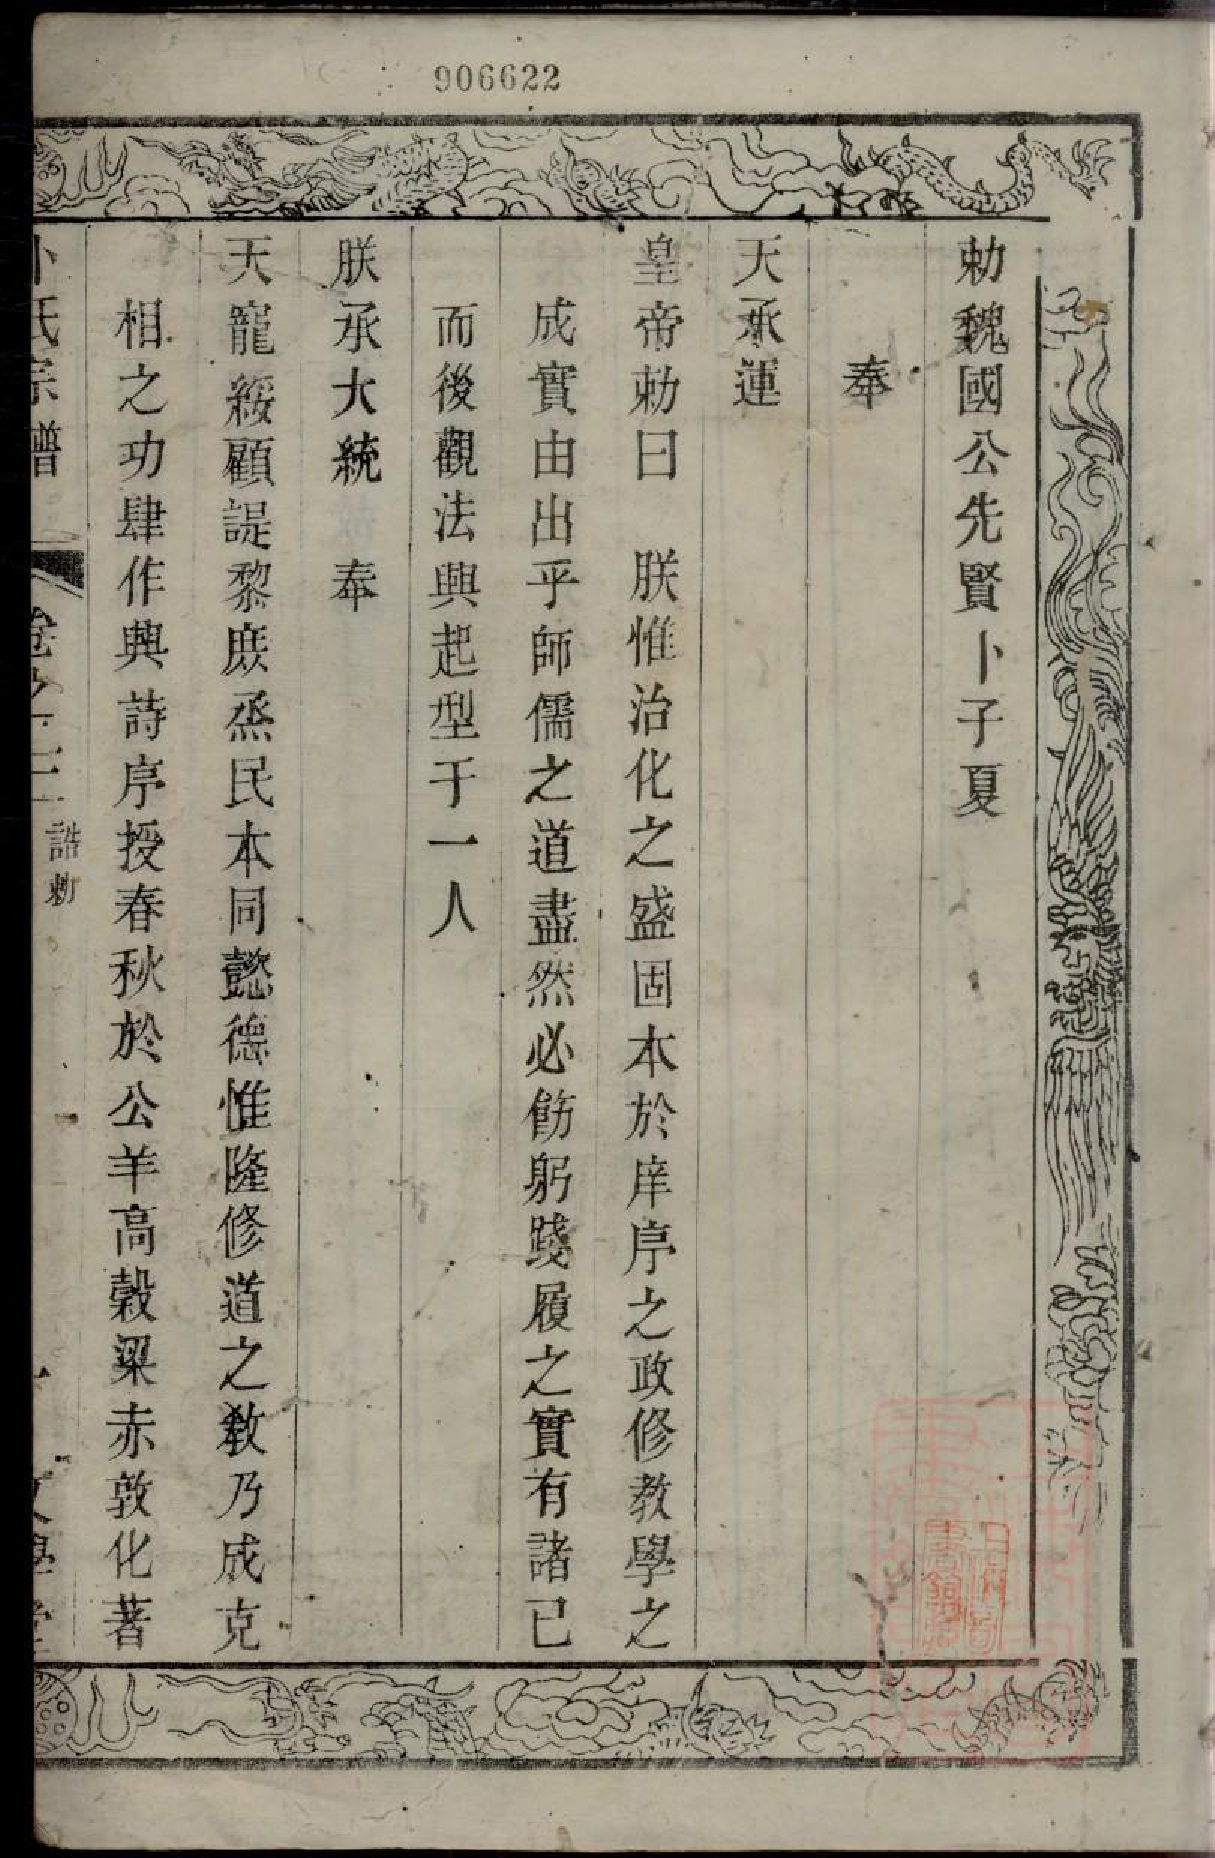 906622
勅魏國公先賢卜子夏
奉
天承運
皇帝勅曰　朕惟治化之盛固本於庠序之政修教學之
成實由出乎師儒之道盡然必飭躬踐履之實有諸已
而後觀法興起型于一人
朕承大統　奉
天寵綏顧諟黎庶烝民本同懿德惟隆修道之教乃成克
相之功肆作興詩序授春秋於公羊高穀梁赤敦化著
卜氏宗譜
卷之二
誥勅
文學堂